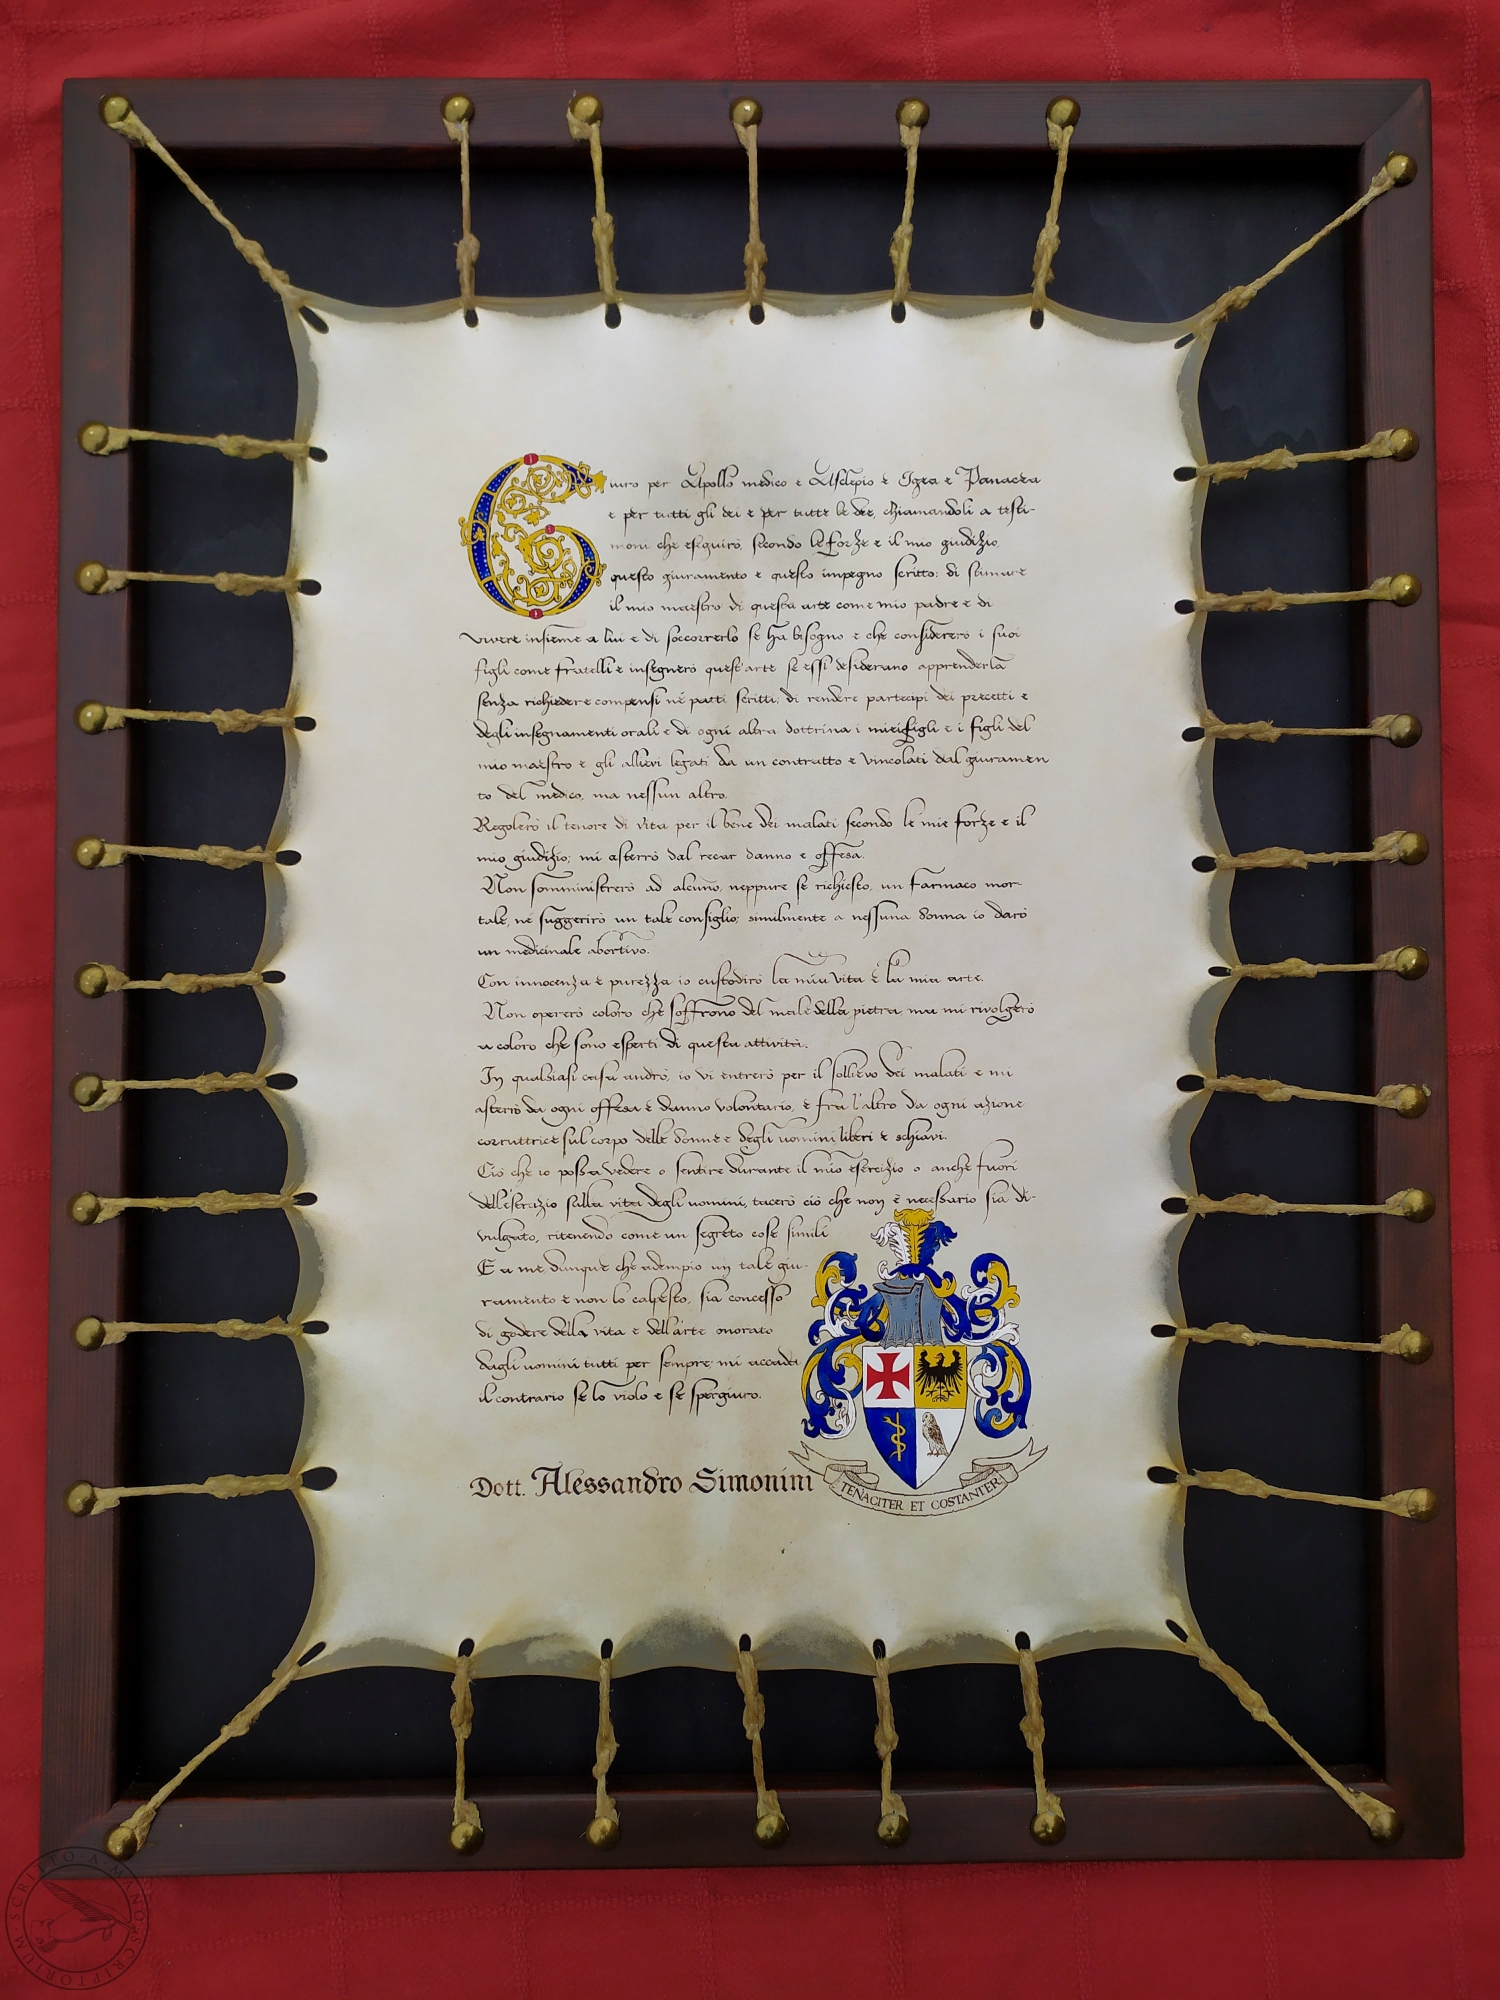 Giuro per Apollo medico e Asclepio e Igea e Panacea
e per tutti gli dei e per tutte le dee, chiamandoli a testi-
moni che eseguirò, secondo le forze e il mio giudizio,
questo giuramento e questo impegno scritto: di stimare
il mio maestro di questa arte come mio padre e di
vivere insieme a lui e di soccorrerlo se ha bisogno e che considererò i suoi
figli come fratelli e insegnerò quest'arte se essi desiderano apprenderla
senza richiedere compensi né patti scritti; di rendere partecipi dei precetti e
degli insegnamenti orali e di ogni altra dottrina i miei figli e i figli del
mio maestro e gli allievi legati da un contratto e vincolati dal giuramen
to del medico, ma nessun altro.
Regolerò il tenore di vita per il bene dei malati secondo le mie forze e il
mio giudizio; mi asterrò dal recar danno e offesa.
Non somministrerò ad alcuno, neppure se richiesto, un farmaco mor-
tale, né suggerirò un tale consiglio; similmente a nessuna donna io darò
un medicinale abortivo.
Con innocenza e purezza io custodirò la mia vita e la mia arte.
Non opererò coloro che soffrono del male della pietra ma mi rivolgerò
a coloro che sono esperti di questa attività.
In qualsiasi casa andrò, io vi entrerò per il sollievo dei malati e mi
asterrò da ogni offesa e danno volontario, e fra l'altro da ogni azione
corruttrice sul corpo delle donne e degli uomini liberi e schiavi.
Ciò che io possa vedere o sentire durante il mio esercizio o anche fuori
dell'esercizio sulla vita degli uomini, tacerò ciò che non è necessario sia di-
vulgato, ritenendo come un segreto cose simili
E a me dunque che adempio un tale giu-
ramento e non lo calpesto, sia concesso
di godere della vita e dell'arte onorato
dagli uomini tutti per sempre; mi accada
il contrario se lo violo e se spergiuro.
Dott. Alessandro Simonini
TENACITER ET COSTANTER
SCRITTO · A · MANO · SCRIPTORIUM